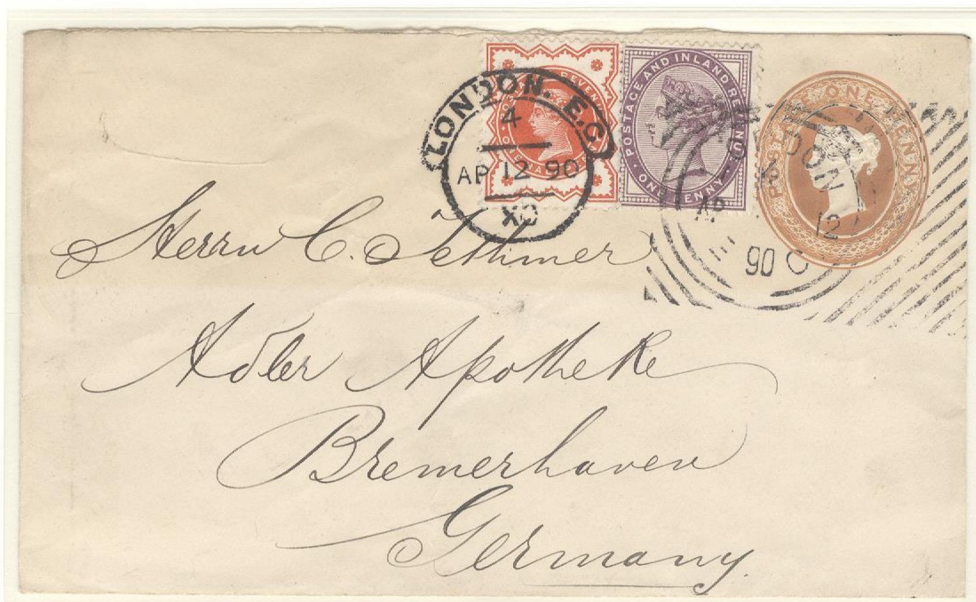 LONDON. E.C
4
AP 12 90
X3
POSTAGE AND INLAND REVENUE
ONE PENNY
ONE PENNY
AP 12
90
Herrn C. Tethmer
Adler Apotheke
Bremerhaven
Germany.